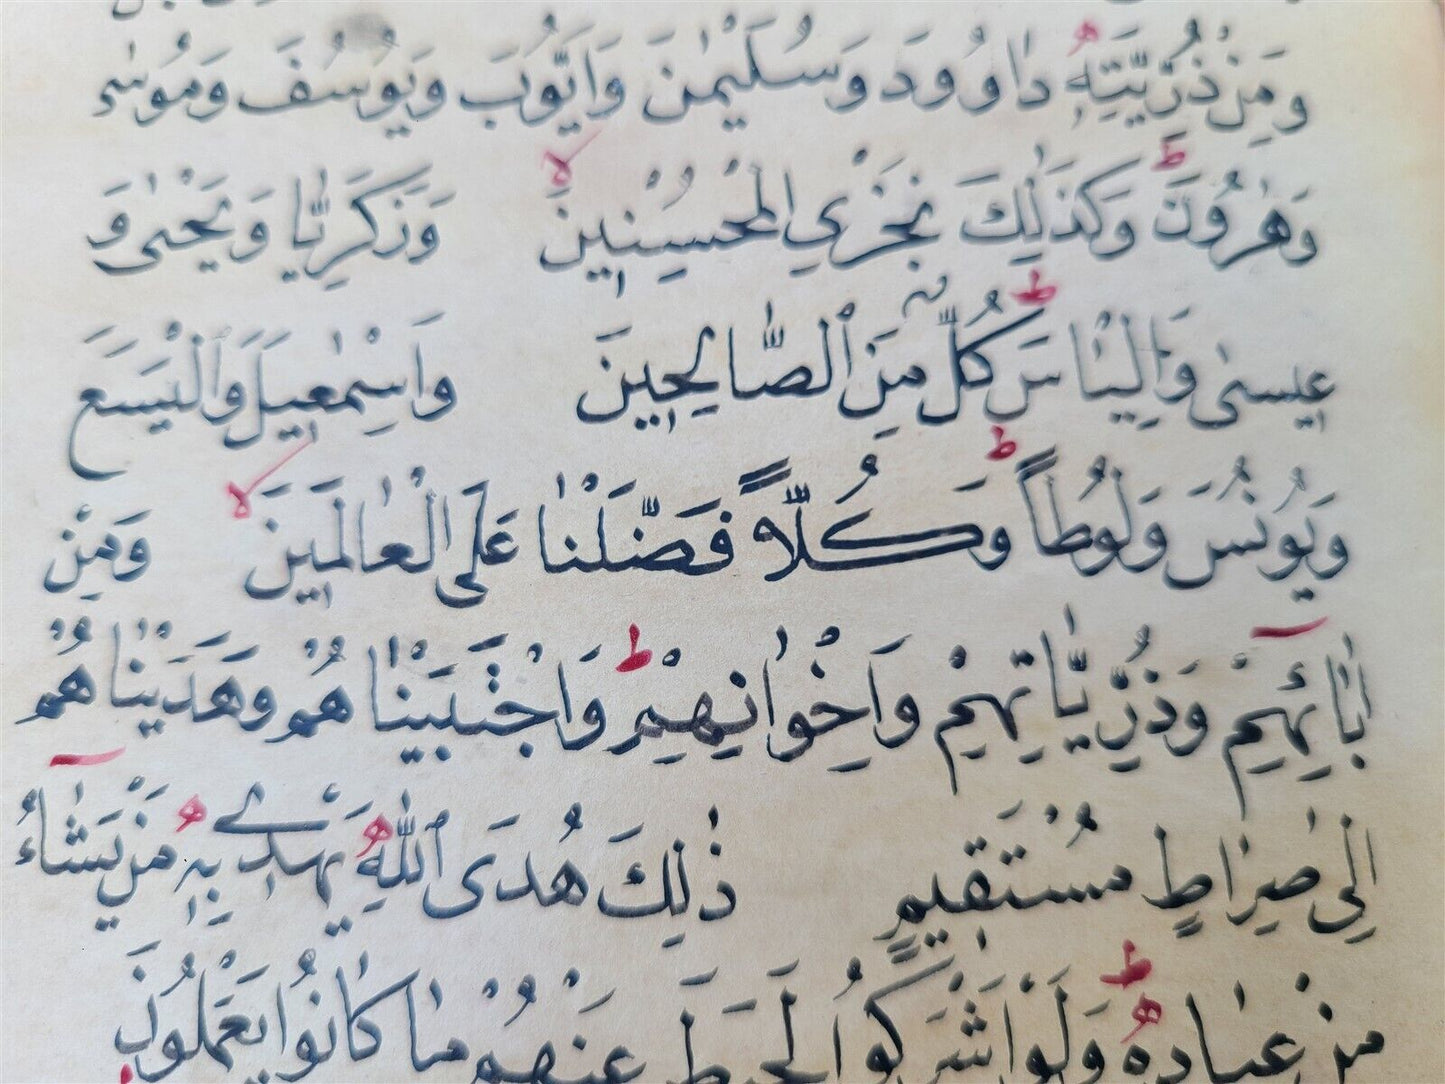 وَمِنْ ذُرِّيَّتِهٖ دَاوُودَ وَسُلَيْمٰنَ وَاَيُّوبَ وَيُوسُفَ وَمُوسٰى
وَهٰرُونَ ط وَكَذٰلِكَ نَجْزِي الْمُحْسِنِينَ لا وَزَكَرِيَّا وَيَحْيٰى وَ
عِيسٰى وَاِلْيَاسَ ط كُلٌّ مِنَ ٱلصَّالِحِينَ وَاِسْمٰعِيلَ وَالْيَسَعَ
وَيُونُسَ وَلُوطاً ط وَكُلّاً فَضَّلْنَا عَلَى الْعَالَمِينَ لا وَمِنْ
اٰبَائِهِمْ وَذُرِّيَّاتِهِمْ وَاِخْوَانِهِمْ ط وَاجْتَبَيْنَاهُمْ وَهَدَيْنَاهُمْ
اِلٰى صِرَاطٍ مُسْتَقِيمٍ ذٰلِكَ هُدَى ٱللّٰهِ يَهْدِي بِهٖ مَنْ يَشَاءُ
مِنْ عِبَادِهٖ ط وَلَوْ اَشْرَكُوا لَحَبِطَ عَنْهُمْ مَا كَانُوا يَعْمَلُونَ